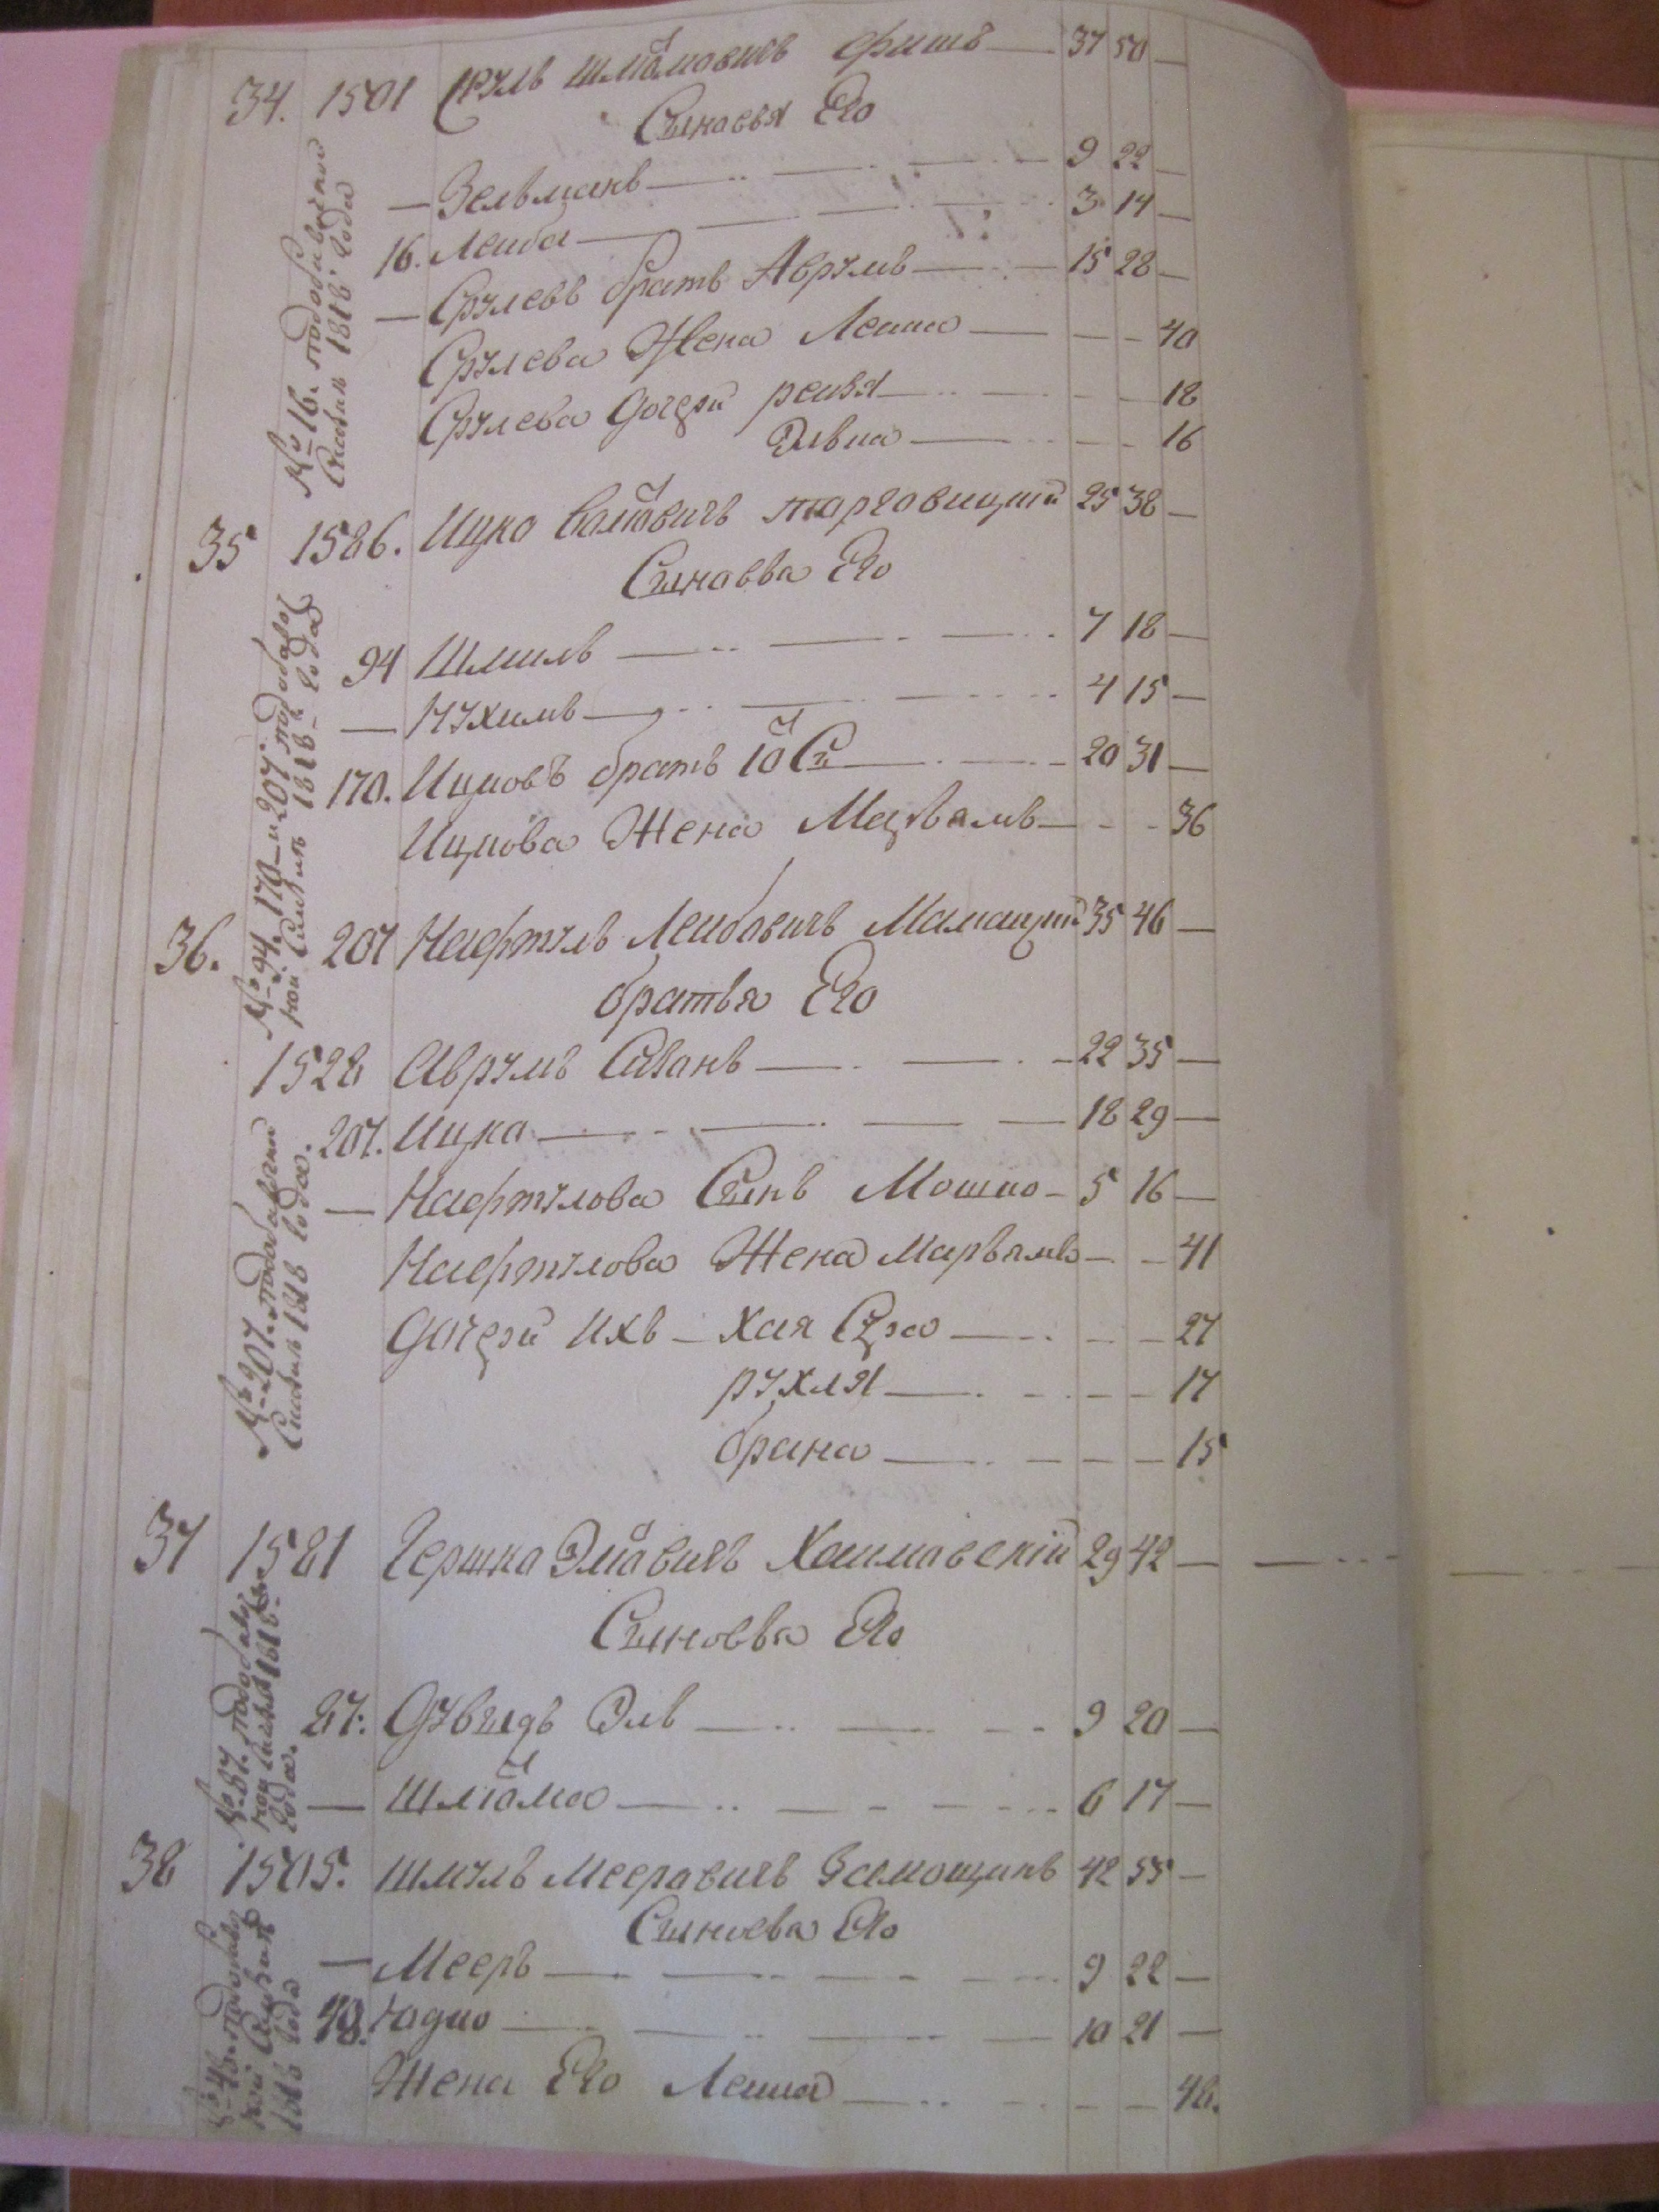 34. 1501 Сруль Шліомовичъ Фишъ — 37 50 —
Сыновья Его
— Зельманъ — 9 22 —
16. Леиба — 3 14 —
— Срулевъ братъ Аврумъ — 15 28 —
Срулева Жена Леика — — — 40
Срулева дочери реизя — — — 18
Элька — — — 16
№ 16. подобавочной
Скаскѣ 1818 года
35 1586. Ицко Волховичъ торговицкій 25 38 —
Сыновья Его
94 Шмиль — 7 18 —
— Нухимъ — 4 15 —
170. Ицковъ братъ Іось — 20 31 —
Ицкова Жена — — — 36
№ 94. 170 и 207 подобавоч
ной Скаскѣ 1818 года
36. 207 Нафтуль Леибовичъ 35 46 —
братья Его
1528 Аврумъ — 22 35 —
207. Ицко — 18 29 —
— Нафтулова Сынъ Мошко — 5 16 —
Нафтулова Жена Марьямъ — — — 41
дочери ихъ — Хая Сура — — — 27
рухля — — — 17
брана — — — 15
№ 207. подобавочной
Скаскѣ 1818 года.
37 1581 Гершко Эліовичъ Хаимовскій 29 42 —
Сыновья Его
87. Дувидъ Эль — 9 20 —
— Шліома — 6 17 —
№ 87. подобавоч
ной Скаскѣ 1818
года.
38 1505. Шмуль Мееровичъ 42 55 —
Сыновья Его
— Мееръ — 9 22 —
48. Юдко — 10 21 —
Жена Его Леика — — — 48.
№ 48. подобавоч
ной Скаскѣ
1818 года